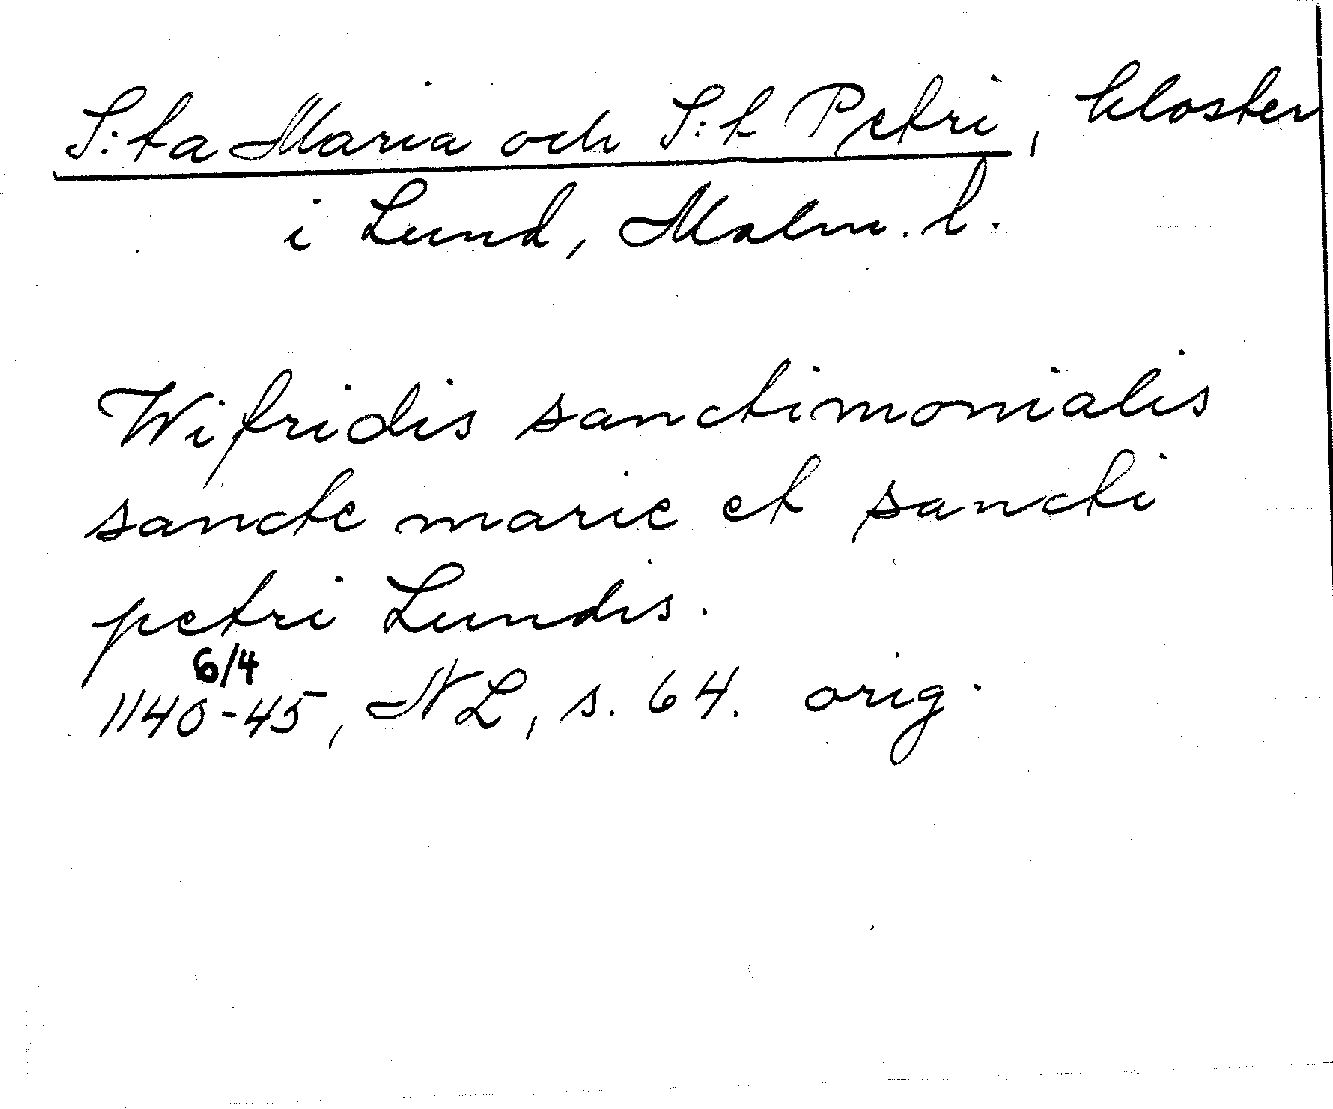 S:ta Maria och S:t Petri, kloster
i Lund, Malm. l.
Wifridis sanctimonialis
sancte marie et sancti
petri Lundis.
6/4
1140-45, NL, s. 64. orig.